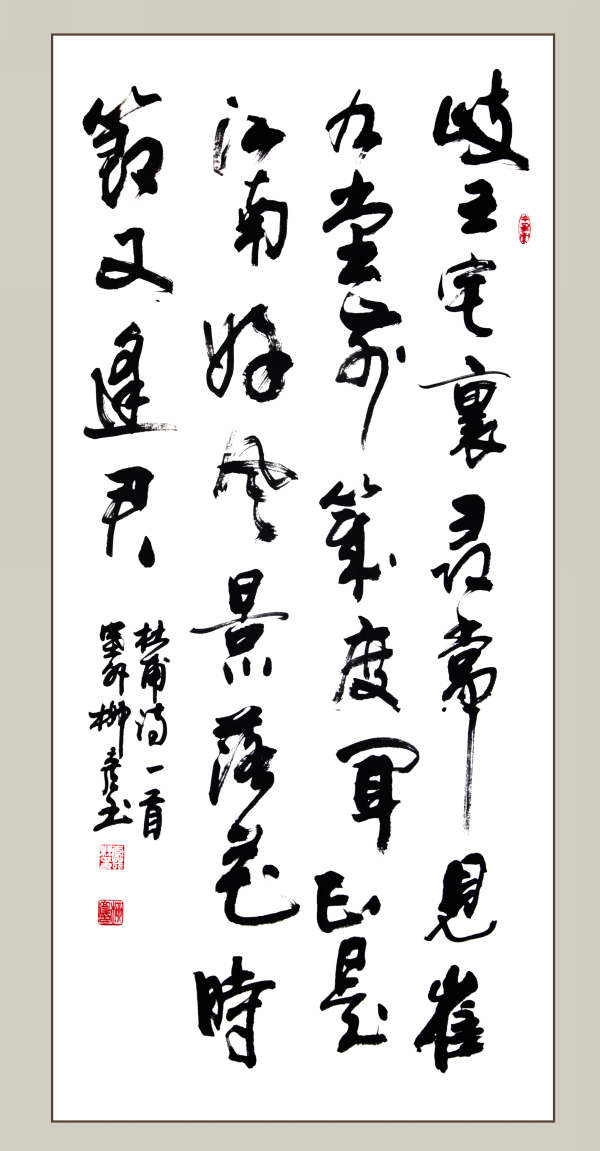 岐王宅裏尋常見崔
九堂前幾度聞正是
江南好風景落花時
節又逢君
杜甫詩一首
外柳彥